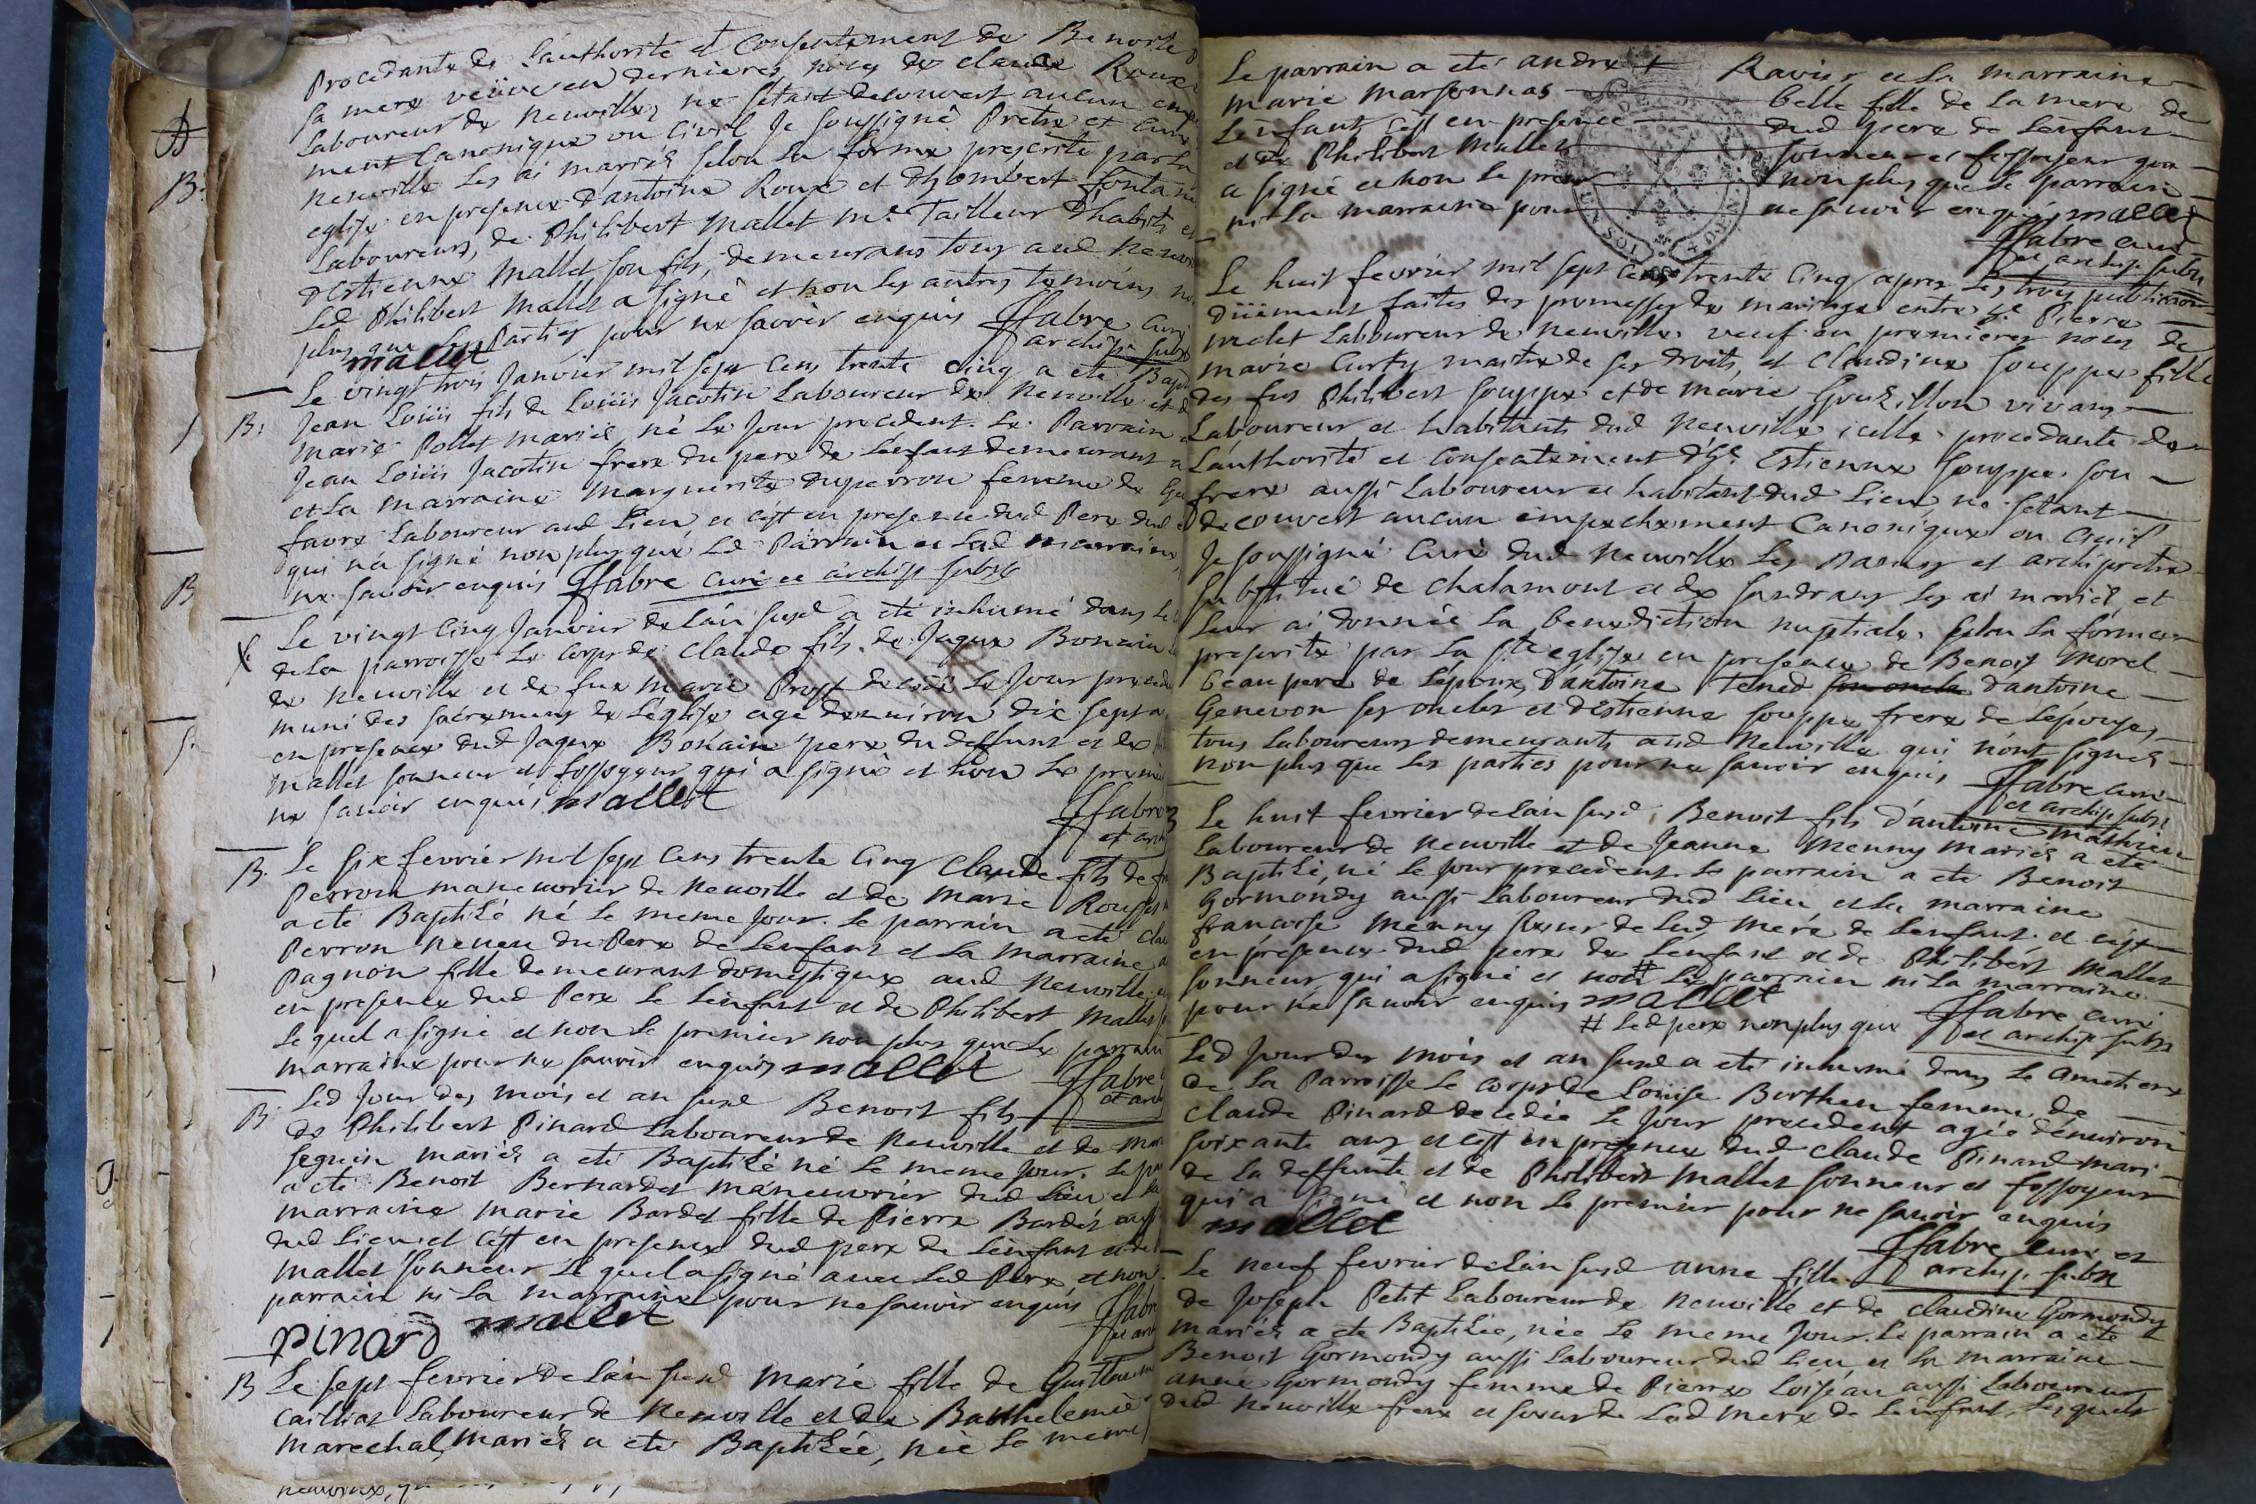 Procedante de l'authorité et consentement de Benoite
sa mere veüve en dernieres noces de claude Roux
Laboureur de Neuville, ne s'etant decouvert aucun
ment Canonique ou Civil Je soussigné Pretre et curé
Neuville les ai mariés selon la forme prescrite par la
eglise en presence d'antoine Roux et d'humbert
Laboureurs, de Philibert Mallet me Tailleur d'habits et
d'Estienne Mallet son fils, demeurans tous aud Neuville
Led Philibert Mallet a signé et non les autres temoins
plus que les Parties pour ne savoir enquis ffabre Curé
mallet archip. subst
Le vingt trois Janvier mil sept cens trente cinq a eté Bapt
B: Jean Loüis fils de Loüis Jacotin Laboureur de Neuville et d
Marie Pollet mariés, né le Jour precedent. Le Parrain
Jean Loüis Jacotin frere du pere de l'enfant demeurant
et la marraine Marguerite duperron femme de
favre Laboureur aud Lieu et c'est en presence dud Pere
qui n'a signé non plus que Led Parrain et Lad marraine
ne savoir enquis ffabre curé et archip subst
Le vingt cinq Janvier de l'an susd a eté inhumé dans le
de La parroisse Le corps de claude fils de Jaque Bonain
de Neuville et de fue Marie Prost decedé Le Jour prece
muni des sacremens de L'eglise agé d'environ dix sept a
en presence dud Jaque Bonain pere du deffunt et de
Mallet sonneur et fossoyeur qui a signé et non Le premier
ne savoir enquis mallet ffabre
et arch
B. Le six fevrier mil sept cens trente Cinq Claude fils de
Perron maneuvrier de Neuville et de Marie
a eté Baptisé né Le meme Jour. Le parrain a eté
Perron neveu du Pere de L'enfant et La Marraine
Pagnon fille demeurant domestique aud Neuville
en presence dud Pere de L'enfant et de Philibert Mallet
Lequel a signé et non Le premier non plus que Le parrain
marraine pour ne savoir enquis mallet ffabre
et arch
B: Led Jour des mois et an susd Benoist fils
de Philibert Pinard Laboureur de Neuville et de
seguin mariés a eté Baptisé né Le meme Jour. Le
a eté Benoit Bernardet maneuvrier dud Lieu et La
marraine Marie Bardet fille de Pierre Bardet aussi
dud Lieu et c'est en presence dud pere de L'enfant et de
Mallet sonneur Lequel a signé avec Led Pere et non
parrain ni La marraine pour ne savoir enquis ffabre
pinard mallet
B Le sept fevrier de L'an susd Marie fille de Guillaume
Cailliat Laboureur de Neuville et de Barthelemie
Marechal, Mariés a eté Baptisée, née Le meme
Le parrain a eté andre + Ravier et La marraine
Marie Marsonnas belle fille de La mere de
L'enfant, c'est en presence dud pere de L'enfant
et de Philibert Mallet sonneur et fossoyeur qui
a signé et non le premier non plus que Le parrain
ni La marraine pour ne savoir enquis, mallet
ffabre curé
et archip. subst
Le huit fevrier mil sept cens trente Cinq apres Les trois publications
düement faites des promesses de mariage entre se Pierre
Laboureur de Neuville veuf en premieres noces de
marie Curty maitre de ses droits, et Claudine souppe fille
des fus Philibert souppe et de Marie vivans
Laboureur et habitants dud Neuville; icelle procedante de
L'authorité et consentement d'h. Estienne souppe son
frere aussi Laboureur et habitant dud Lieu, ne s'etant
decouvert aucun empechement Canonique ou Civil
Je soussigné Curé dud Neuville Les Dames et archipretre
substitué de chalamont et de sandrans Les ai mariés et
Leur ai donnée la benediction nuptiale selon la forme
prescrite par la ste eglise en presence de Benoit Morel
beau pere de L'epoux, d'antoine Tened son oncle d'antoine
Genevon ses oncles et d'estienne souppe frere de L'épouse
tous Laboureurs demeurants aud Neuville qui n'ont signés
non plus que les parties pour ne savoir enquis ffabre curé
et archip subst
Le huit fevrier de L'an susd, Benoit fils d'antoine mathieu
Laboureur de Neuville et de Jeanne Menny mariés a eté
Baptisé, né le Jour precedent. Le parrain a eté Benoit
Gormondy aussi Laboureur dud Lieu et La marraine
francoise Menny soeur de Lad mere de L'enfant. et c'est
en presence dud pere de L'enfant et de Philibert Mallet
sonneur qui a signé et non # Le parrain ni La marraine
pour ne savoir enquis mallet ffabre curé
# Led pere non plus que et archip subst
Led Jour des mois et an susd a eté inhumé dans le cimetiere
de La Parroisse Le corps de Louise Berthen femme de
claude Pinard decedée Le Jour precedent agée d'environ
soixante ans et c'est en presence dud claude Pinard mari
de la deffunte et de Philibert Mallet sonneur et fossoyeur
qui a signé et non Le premier pour ne savoir enquis
mallet ffabre curé et
archip. subst
Le neuf fevrier de L'an susd anne fille
de Joseph Petit Laboureur de Neuville et de Claudine Gormondy
mariés a eté Baptisée, née Le meme Jour. Le parrain a eté
Benoit Gormondy aussi Laboureur dud Lieu et La marraine
anne Gormondy femme de Pierre Loiseau aussi Laboureur
dud Neuville frere et soeur de Lad Mere de L'enfant, Lesquels